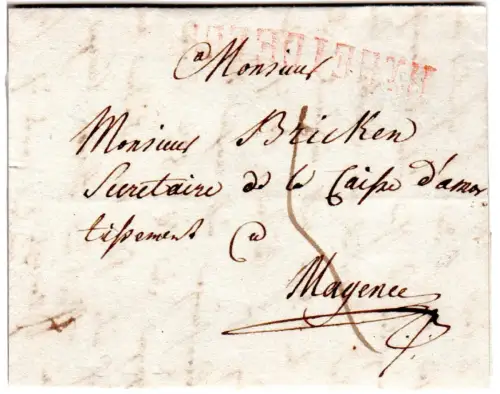 a Monsieur
Monsieur Bricken
Secretaire de la Caisse d'amor
tissement a
Mayence